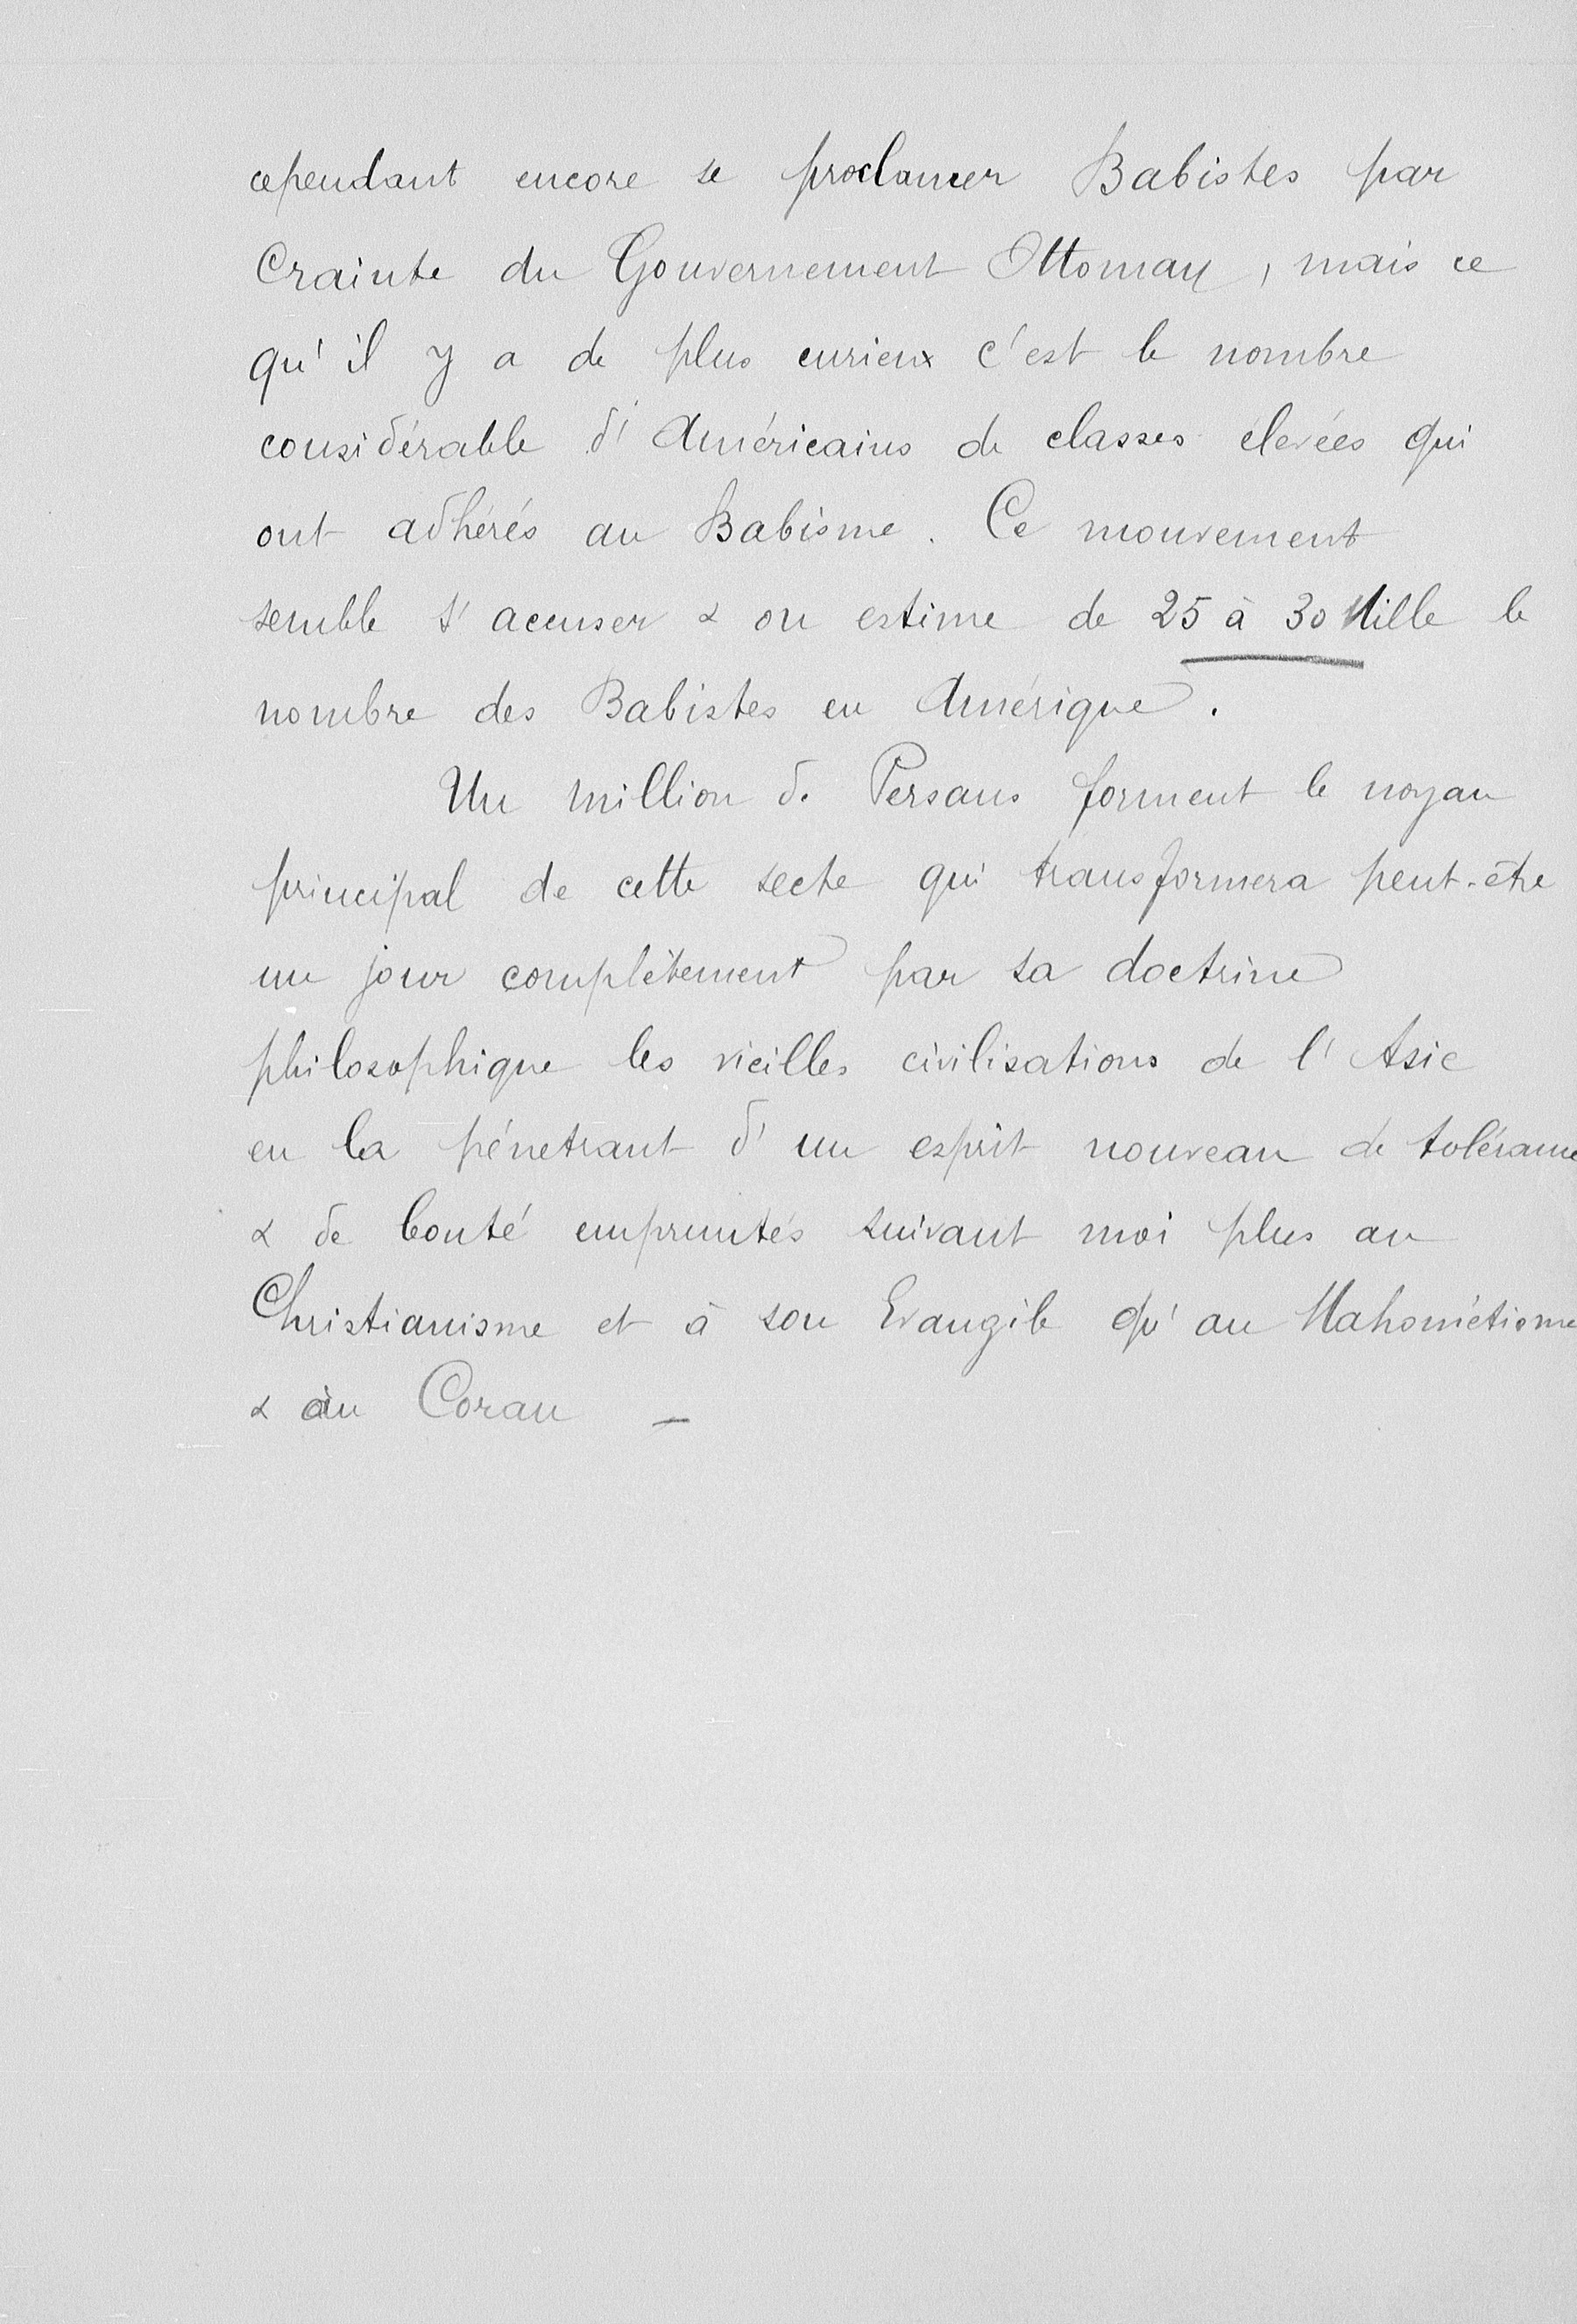 cependant encore se proclamer Babistes par
Crainte du Gouvernement Ottoman, mais ce
qu'il y a de plus curieux c'est le nombre
considérable d'Américains de classes élevées qui
ont adhérés au Babisme. Ce mouvement
semble s'accuser & on estime de 25 à 30 Mille le
nombre des Babistes en Amérique.
Un million de Persans forment le noyau
principal de cette secte qui transformera peut-être
un jour complètement par sa doctrine
philosophique les vieilles civilisations de l'Asie
en la pénetrant d'un esprit nouveau de tolérance
& de bonté empruntés suivant moi plus au
Christianisme et à son Evangile qu'au Mahométisme
& au Coran —